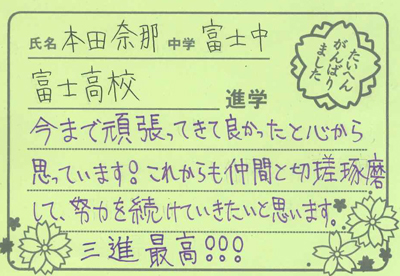 氏名 本田奈那 中学 富士中
富士高校 進学
たいへん
がんばり
ました
今まで頑張ってきて良かったと心から
思っています!これからも仲間と切瑳琢磨
して、努力を続けていきたいと思います。
三進最高!!!